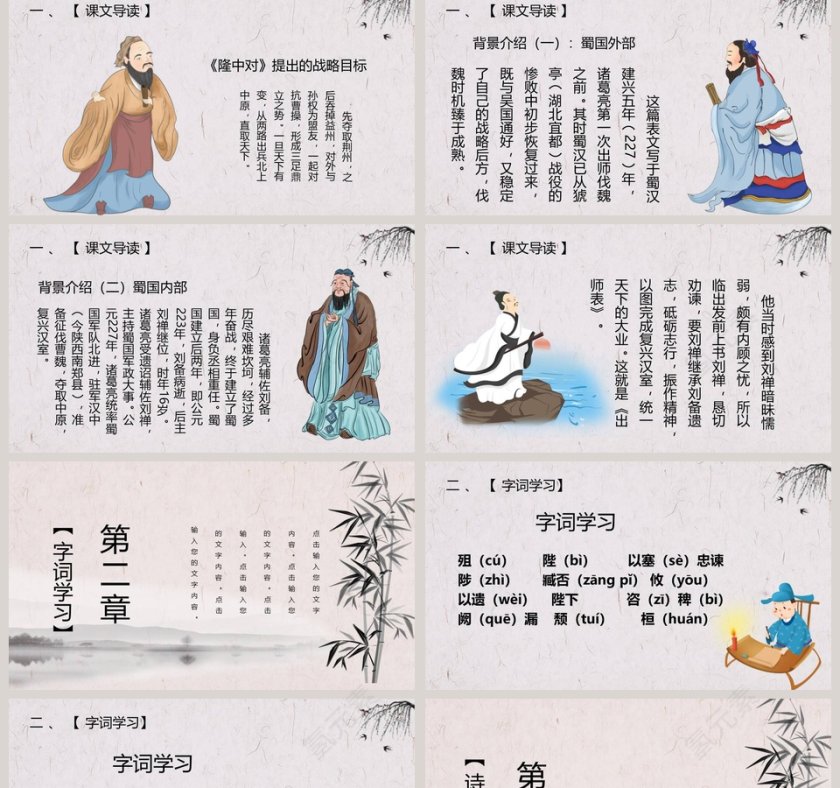 一、【 课文导读 】
《隆中对》提出的战略目标
先夺取荆州，之
后吞掉益州，对外与
孙权为盟友，一起对
抗曹操，形成三足鼎
立之势。一旦天下有
变，从两路出兵北上
中原，直取天下。
一、【 课文导读 】
背景介绍（一）：蜀国外部
这篇表文写于蜀汉
建兴五年（227）年，
诸葛亮第一次出师伐魏
之前。其时蜀汉已从猇
亭（湖北宜都）战役的
惨败中初步恢复过来，
既与吴国通好，又稳定
了自己的战略后方，伐
魏时机臻于成熟。
一、【 课文导读 】
背景介绍（二）蜀国内部
诸葛亮辅佐刘备，
历尽艰难坎坷，经过多
年奋战，终于建立了蜀
国，身负丞相重任。蜀
国建立后两年，即公元
223年，刘备病逝，后主
刘禅继位，时年16岁。
诸葛亮受遗诏辅佐刘禅，
主持蜀国军政大事。公
元227年，诸葛亮统率蜀
国军队北进，驻军汉中
（今陕西南郑县），准
备征伐曹魏，夺取中原，
复兴汉室。
一、【 课文导读 】
他当时感到刘禅暗昧懦
弱，颇有内顾之忧，所以
临出发前上书刘禅，恳切
劝谏，要刘禅继承刘备遗
志，砥砺志行，振作精神，
以图完成复兴汉室，统一
天下的大业。这就是《出
师表》。
第二章
【字词学习】
点击输入您的文字
内容，点击输入您
的文字内容，点击
输入，点击输入您
的文字内容，点击
输入您的文字内容。
二、【 字词学习】
字词学习
殂（cú） 陛（bì） 以塞（sè）忠谏
陟（zhì） 臧否（zāng pǐ） 攸（yōu）
以遗（wèi） 陛下 咨（zī）稗（bì）
阙（quē）漏 颓（tuí） 桓（huán）
二、【 字词学习】
字词学习
第
【诗